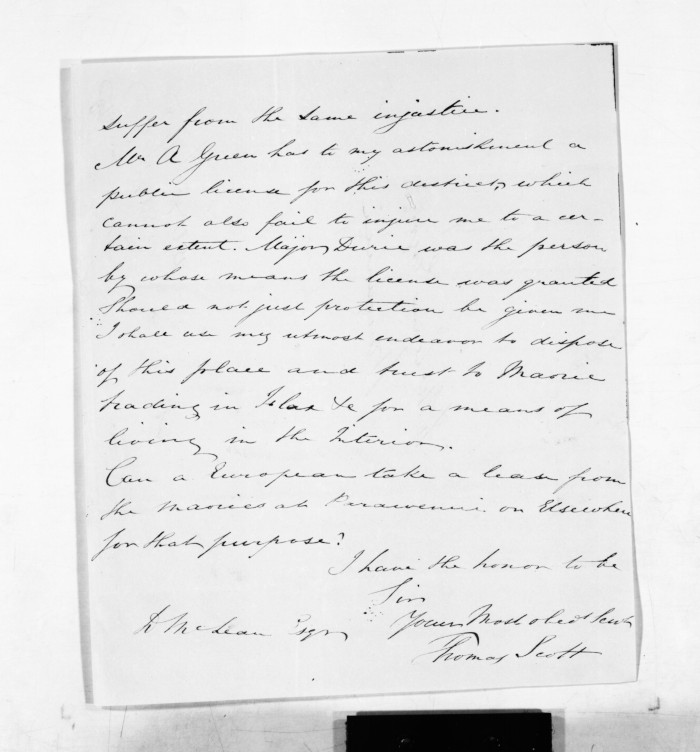 suffer from the same injustice.
Mr A Green has to my astonishment a
public license for this district, which
cannot also fail to injure me to a cer-
tain extent. Major Durie was the person
by whose means the license was granted
Should not just protection be given me
I shall use my utmost endeavor to dispose
of this place and trust to Maorie
trading in Flax &c for a means of
living in the Interior.
Can a European take a lease from
the maories at or Elsewhere
for that purpose?
I have the honor to be
Sir
Your Most obedt Servt
Thomas Scott
D McLean Esqr